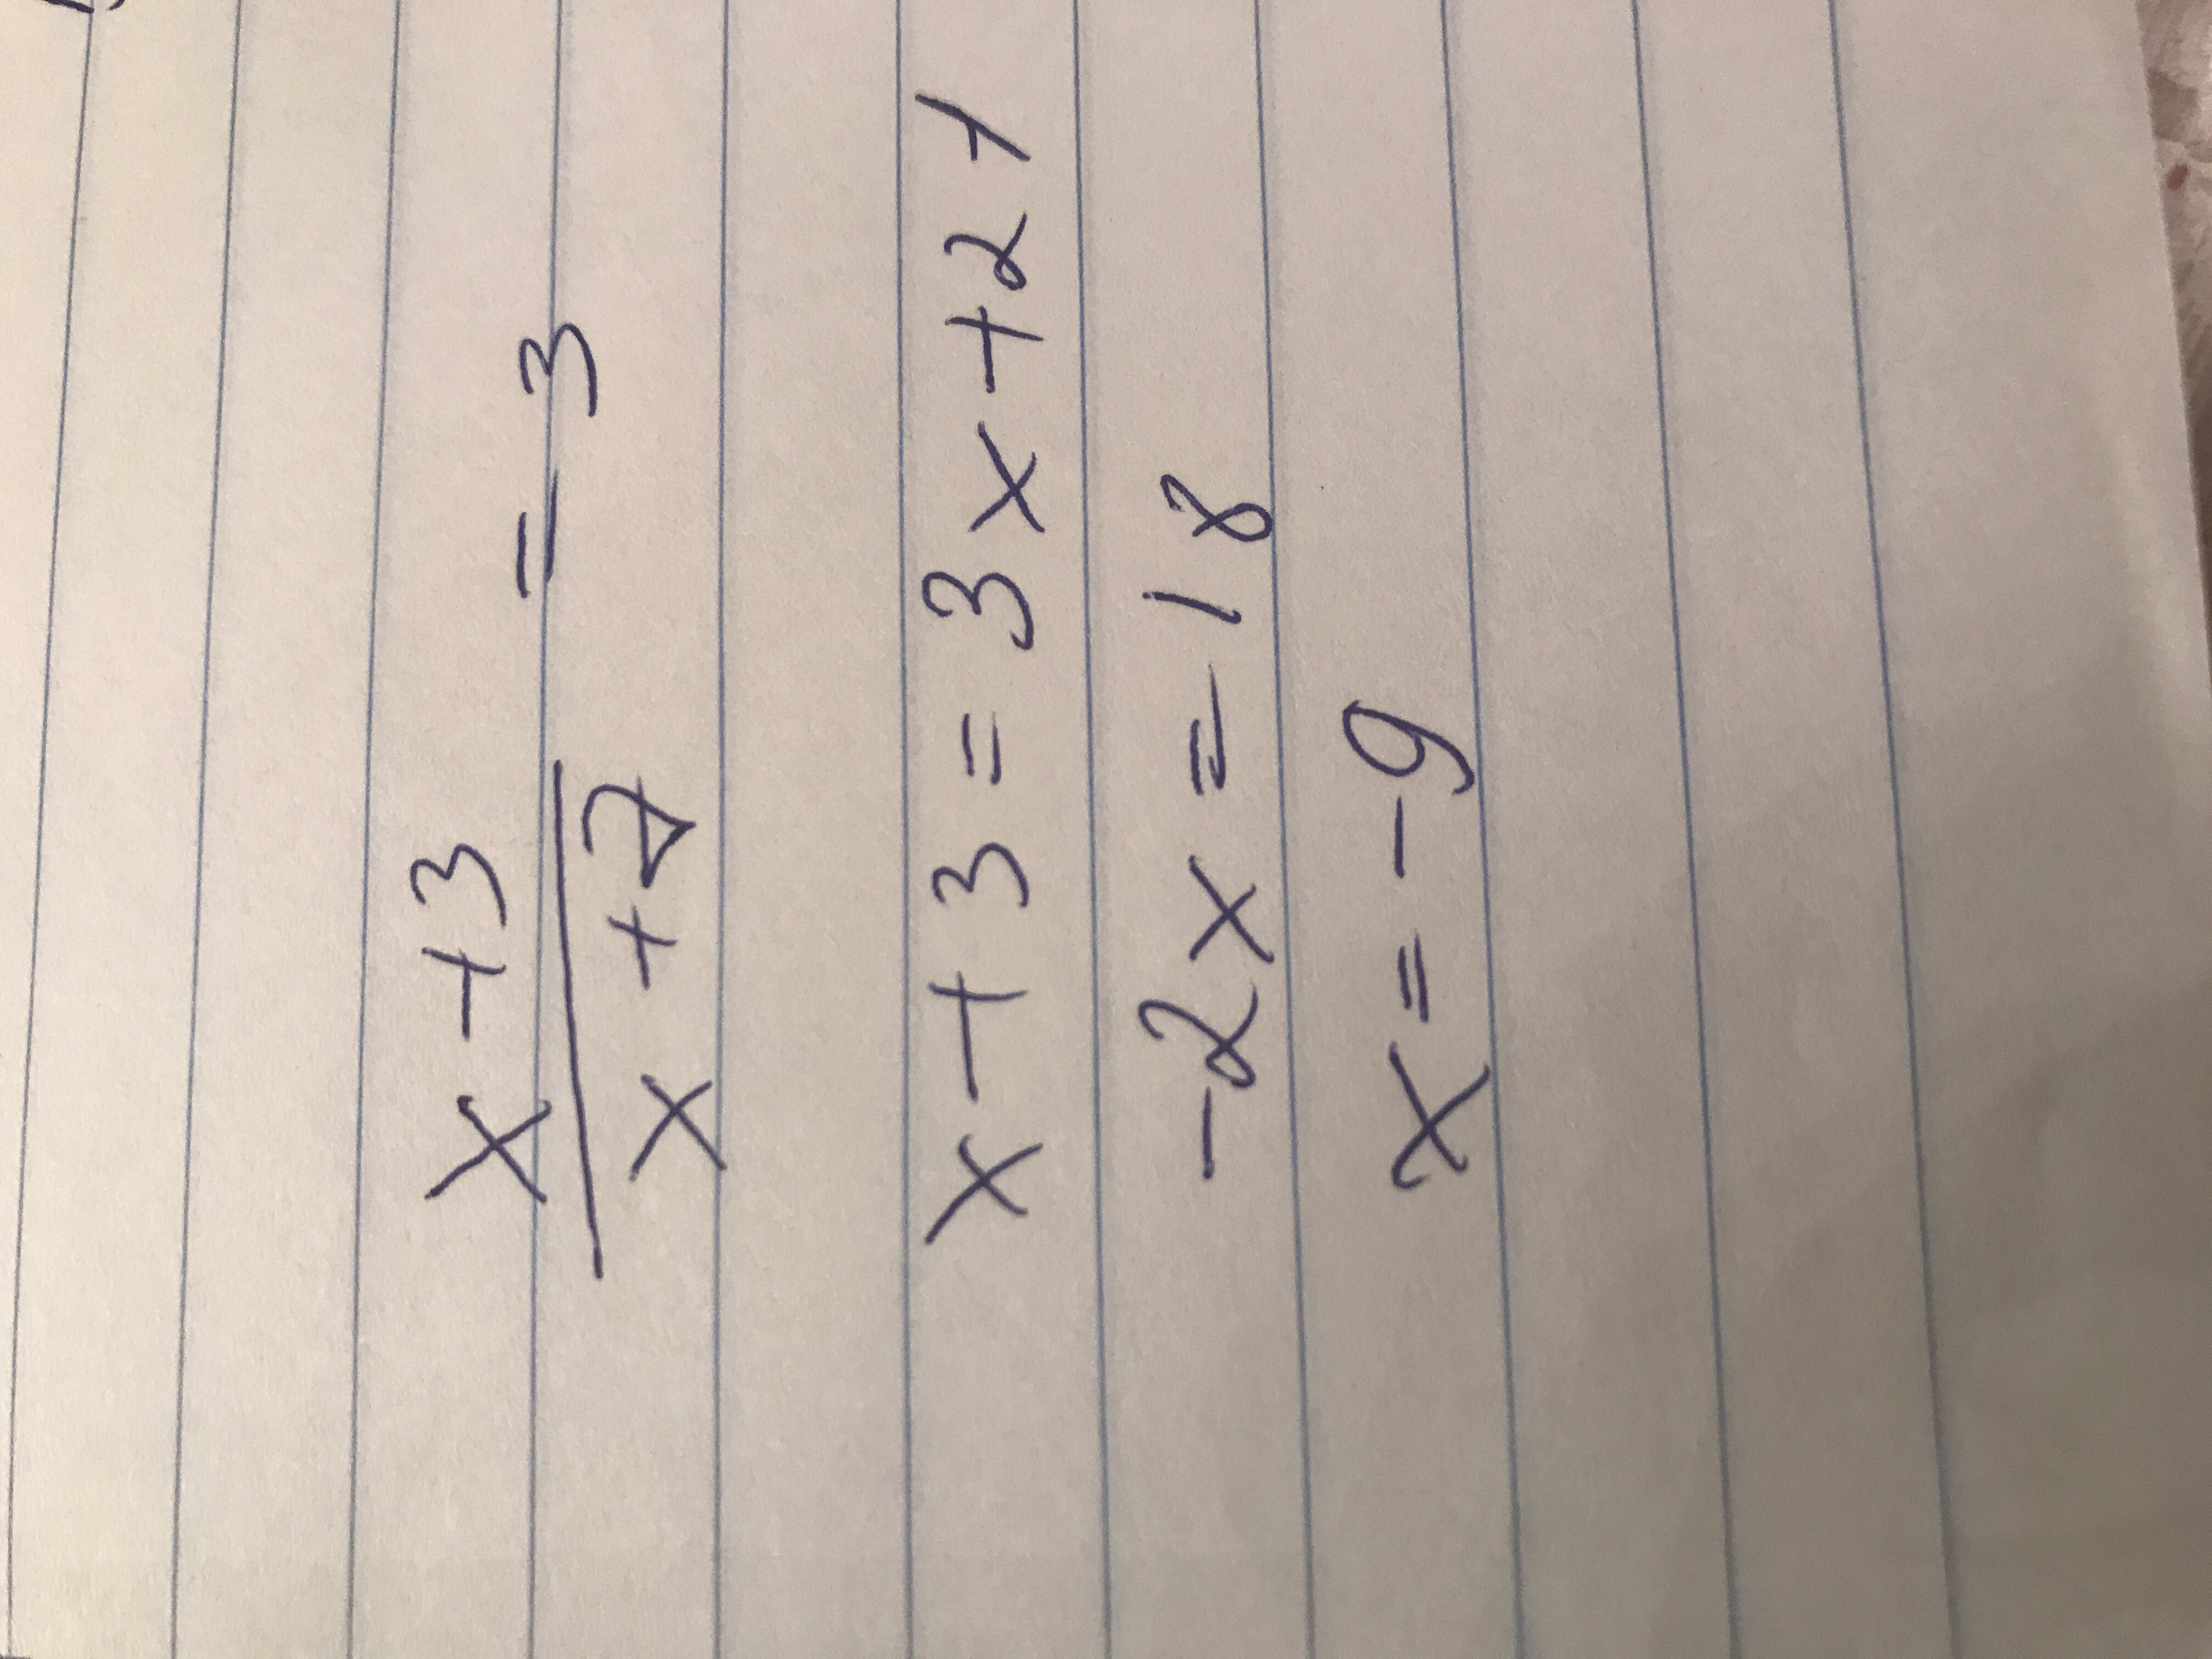 x+3
/ x+7 = 3
x+3=3x+21
-2x=18
x=-9